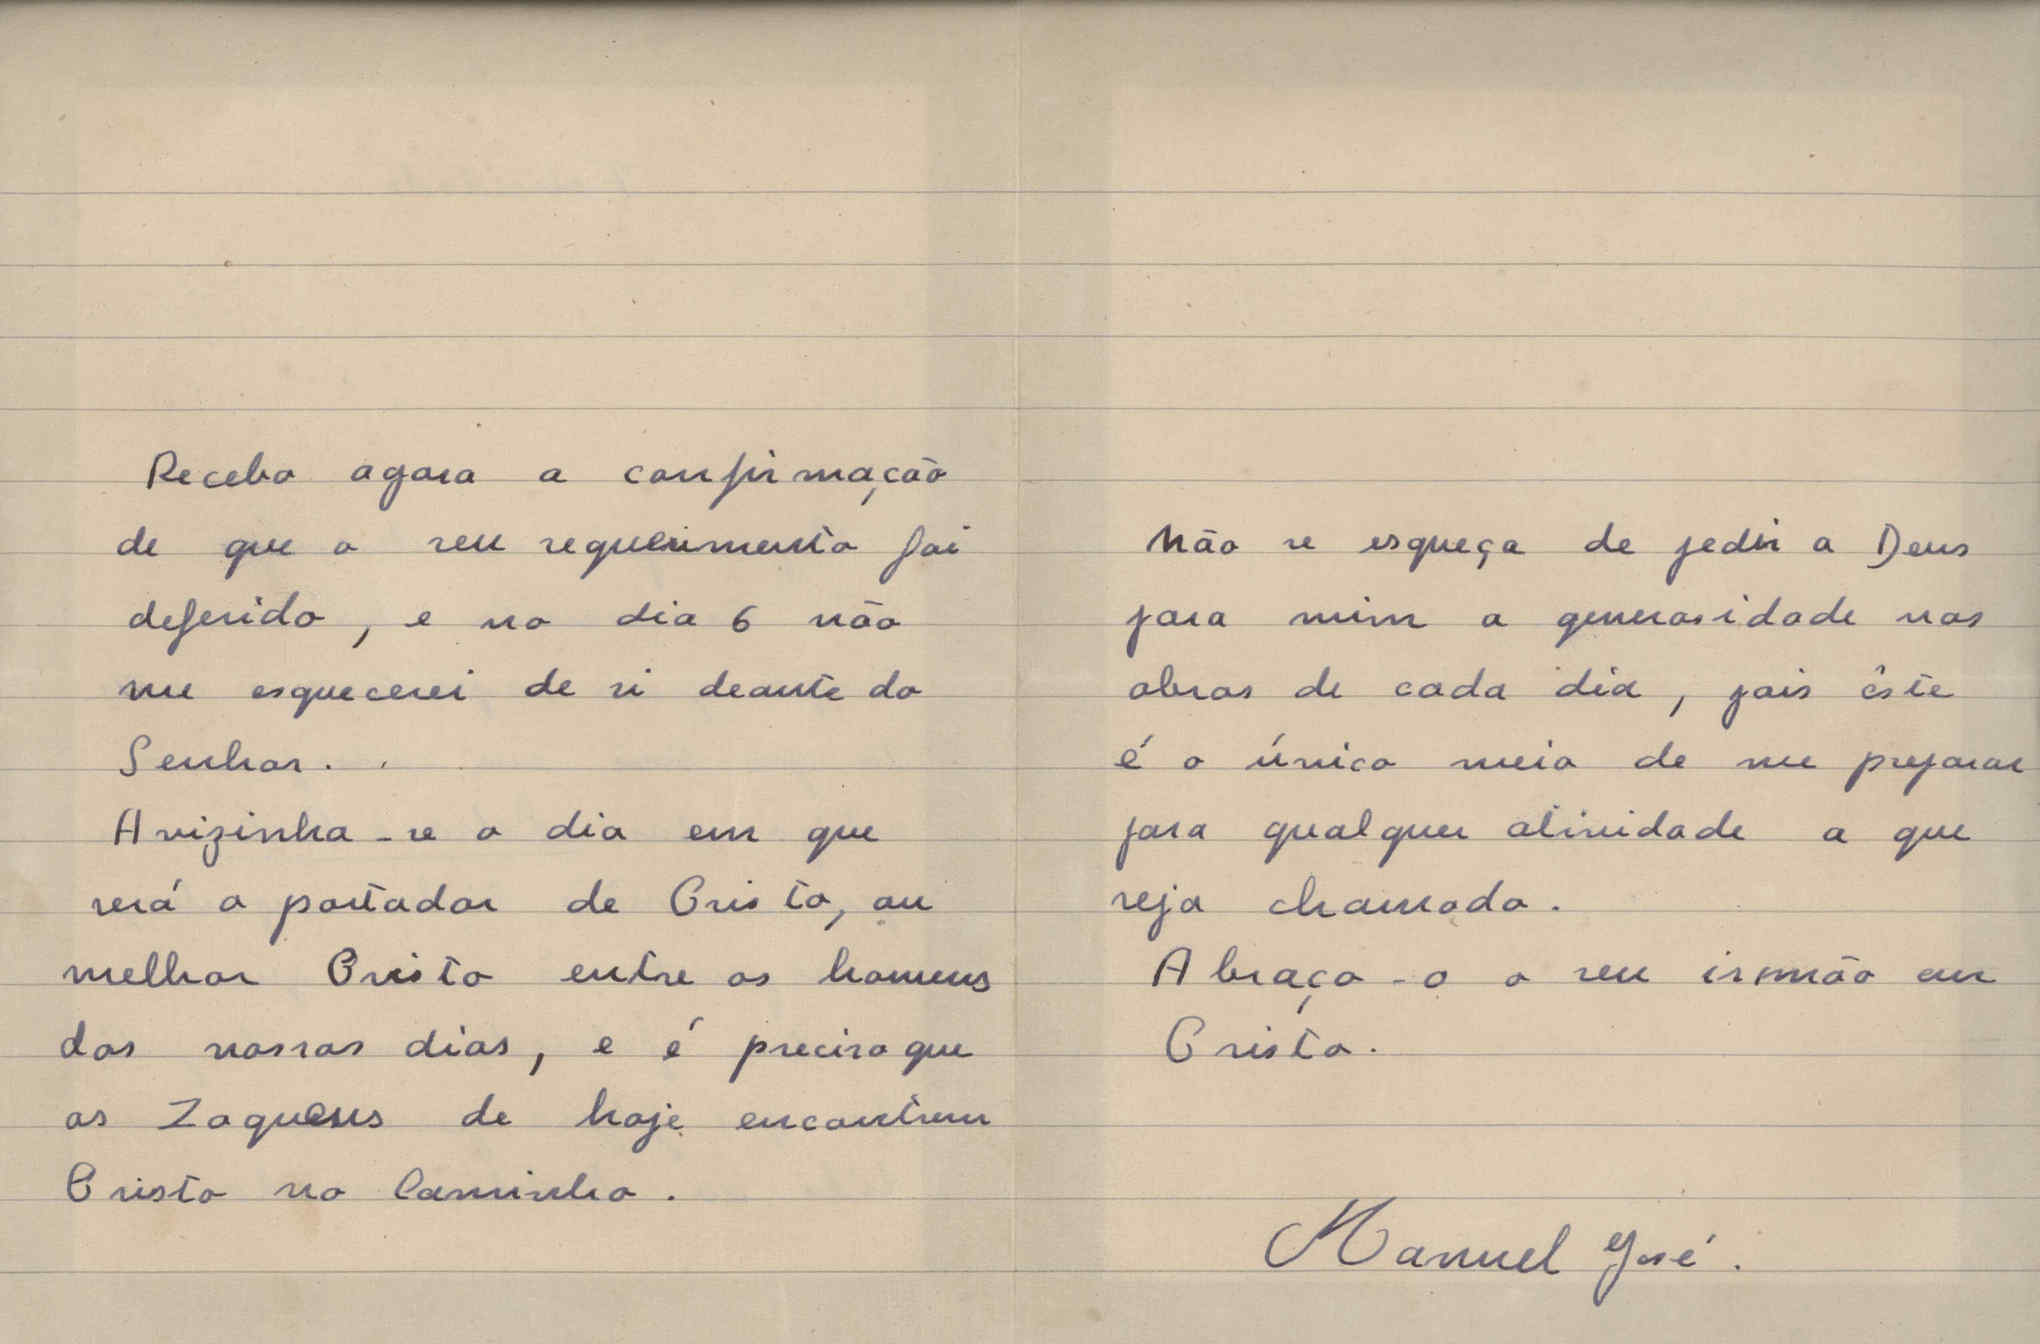 Recebo agora a confirmação
de que o seu requerimento foi
deferido, e no dia 6 não
me esquecerei de si deante do
Senhor.
Avizinha-se o dia em que
será o portador de Cristo, ou
melhor Cristo entre os homens
dos nossos dias, e é preciso que
os Zaqueus de hoje encontrem
Cristo no Caminho.
Não se esqueça de pedir a Deus
para mim a generosidade nas
obras de cada dia, pois êste
é o único meio de me preparar
para qualquer atividade a que
seja chamado.
Abraça-o o seu irmão em
Cristo.
Manuel José.